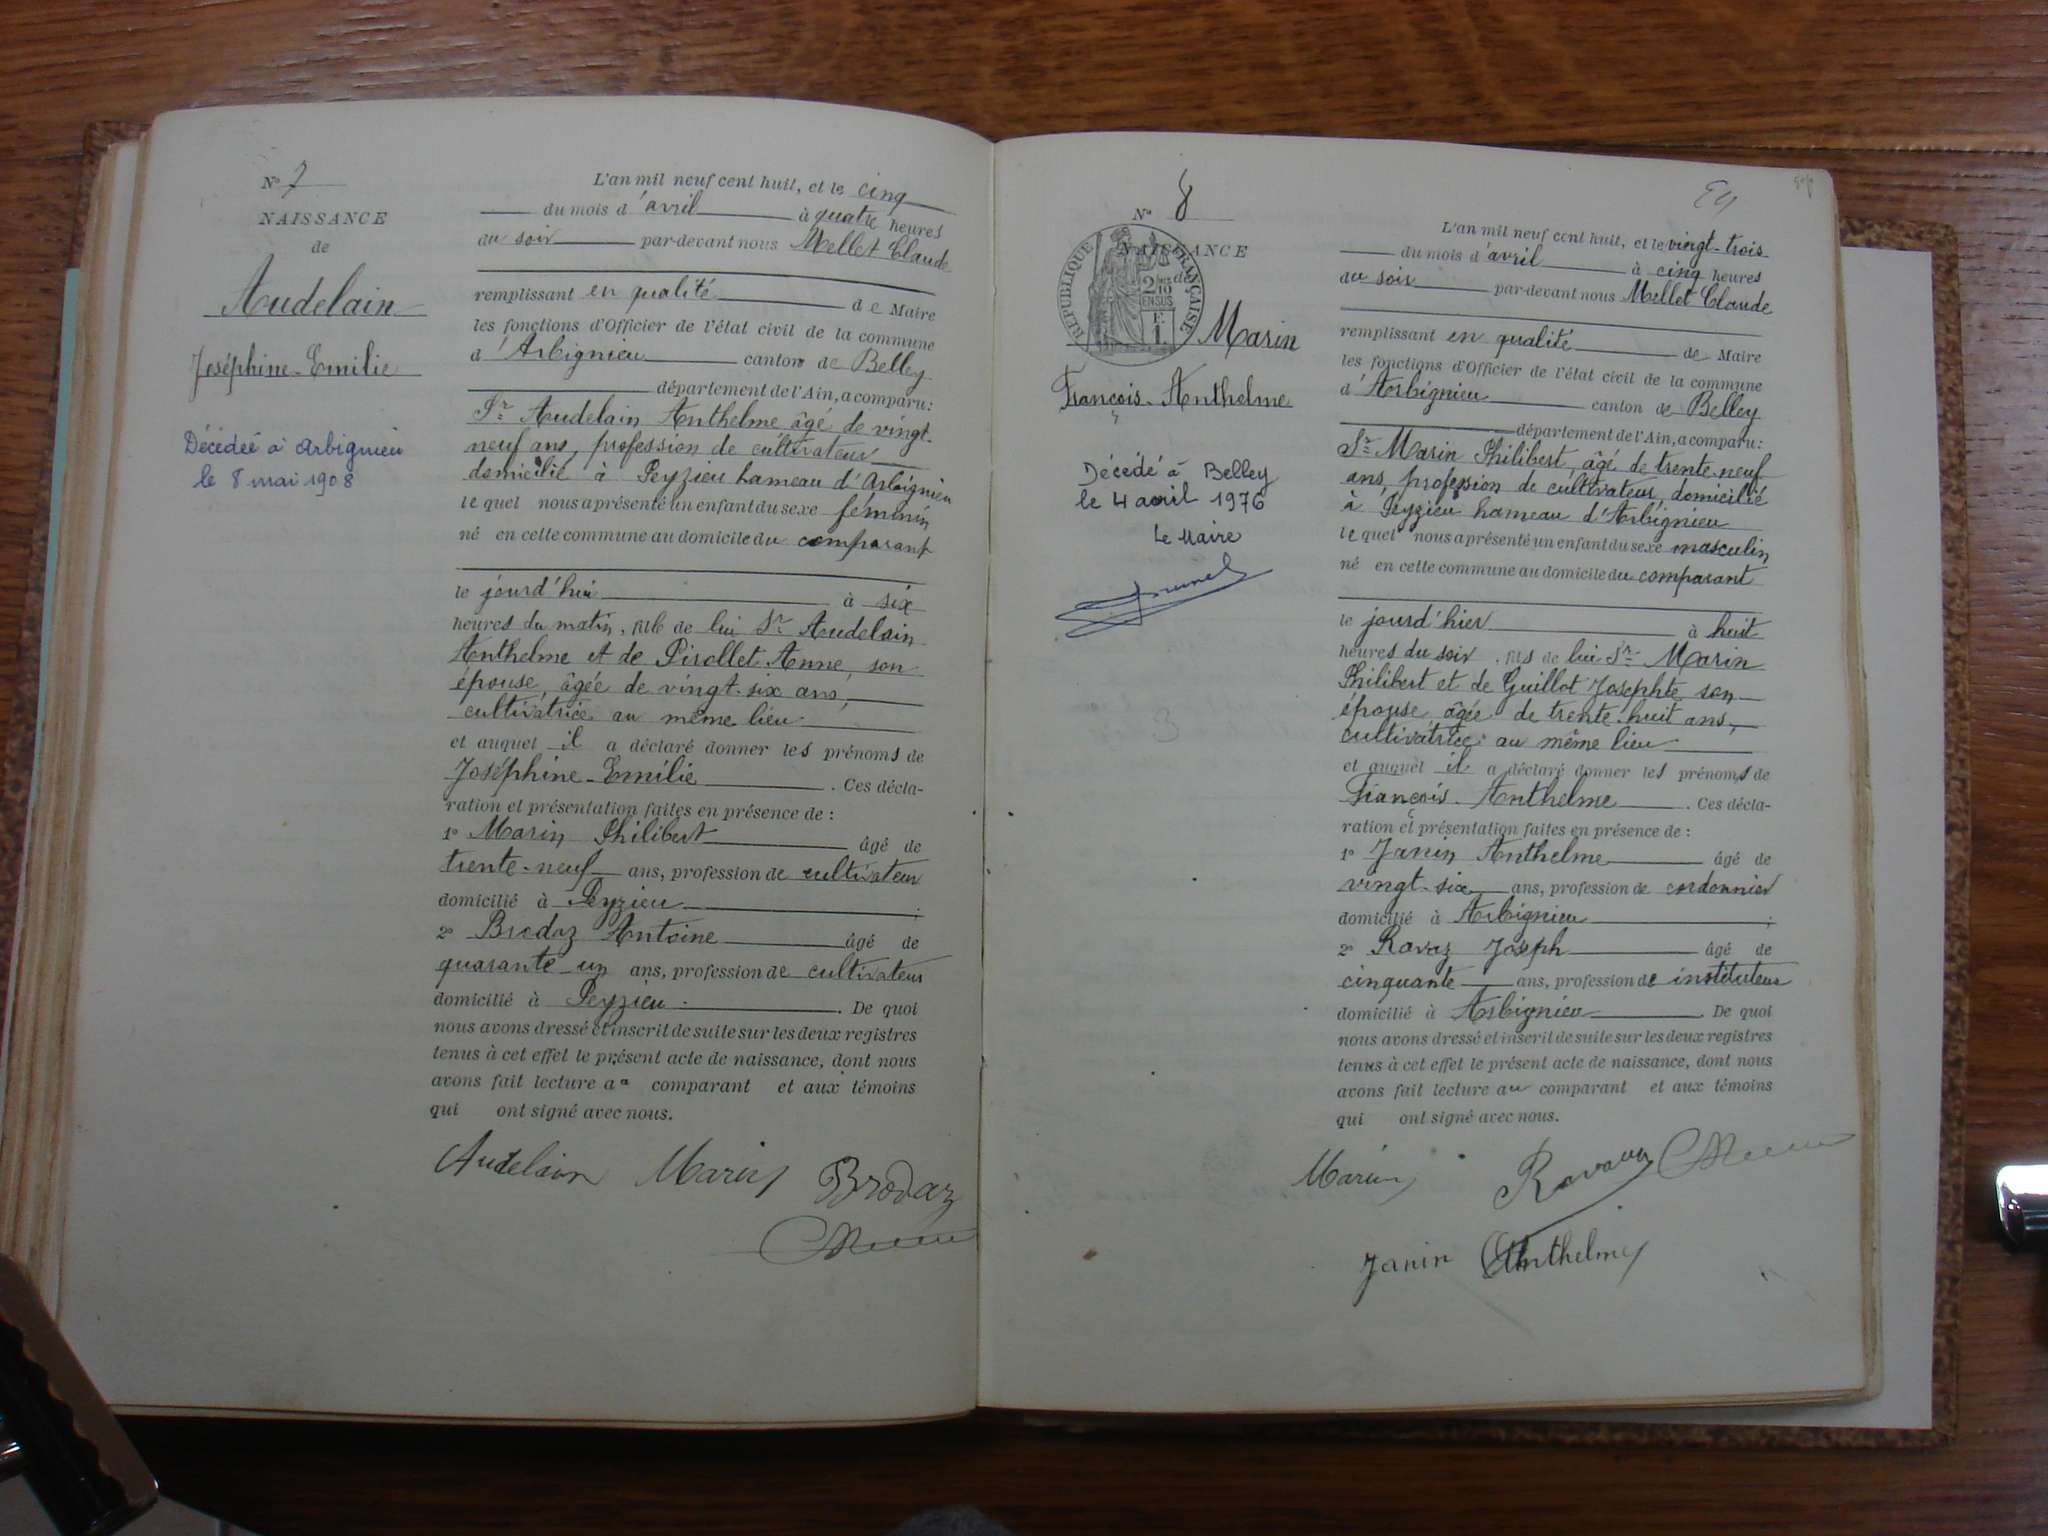 N° 7
NAISSANCE
de
Audelain
Joséphine-Emilie
Décédée à Arbignieu
le 8 mai 1908
L'an mil neuf cent huit, et le cinq
du mois d'avril à quatre heures
du soir par-devant nous Mellet Claude
remplissant en qualité de Maire
les fonctions d'Officier de l'état civil de la commune
d'Arbignieu canton de Belley
département de l'Ain, a comparu:
Sr Audelain Anthelme âgé de vingt-
neuf ans, profession de cultivateur
domicilié à Peyzieu hameau d'Arbignieu
lequel nous a présenté un enfant du sexe féminin
né en cette commune au domicile du comparant
le jourd'hui à six
heures du matin, fille de lui Sr Audelain
Anthelme et de Pirollet Anne, son
épouse, âgée de vingt-six ans,
cultivatrice au même lieu
et auquel il a déclaré donner les prénoms de
Joséphine-Emilie . Ces décla-
ration et présentation faites en présence de :
1° Marin Philibert âgé de
trente-neuf ans, profession de cultivateur
domicilié à Peyzieu ;
2° Brodaz Antoine âgé de
quarante-un ans, profession de cultivateur
domicilié à Peyzieu . De quoi
nous avons dressé et inscrit de suite sur les deux registres
tenus à cet effet le présent acte de naissance, dont nous
avons fait lecture au comparant et aux témoins
qui ont signé avec nous.
Audelain Marin Brodaz
N° 8
NAISSANCE
de
RÉPUBLIQUE FRANÇAISE
Marin
François-Anthelme
Décédé à Belley
le 4 avril 1976
Le Maire
L'an mil neuf cent huit, et le vingt-trois
du mois d'avril à cinq heures
du soir par-devant nous Mellet Claude
remplissant en qualité de Maire
les fonctions d'Officier de l'état civil de la commune
d'Arbignieu canton de Belley
département de l'Ain, a comparu:
Sr Marin Philibert, âgé de trente-neuf
ans, profession de cultivateur, domicilié
à Peyzieu hameau d'Arbignieu
lequel nous a présenté un enfant du sexe masculin
né en cette commune au domicile du comparant
le jourd'hier à huit
heures du soir, fils de lui Sr Marin
Philibert et de Guillot Josephte, son
épouse, âgée de trente-huit ans,
cultivatrice au même lieu
et auquel il a déclaré donner les prénoms de
François-Anthelme . Ces décla-
ration et présentation faites en présence de :
1° Janin Anthelme âgé de
vingt-six ans, profession de cordonnier
domicilié à Arbignieu ;
2° Ravaz Joseph âgé de
cinquante ans, profession de instituteur
domicilié à Arbignieu . De quoi
nous avons dressé et inscrit de suite sur les deux registres
tenus à cet effet le présent acte de naissance, dont nous
avons fait lecture au comparant et aux témoins
qui ont signé avec nous.
Marin Ravaz
Janin Anthelme